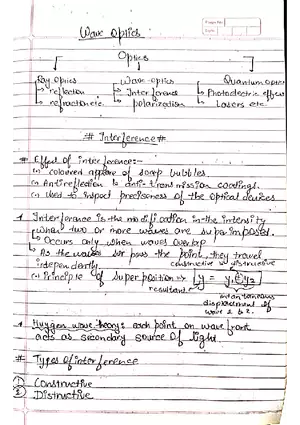 Page No.
Date
Wave Optics
Optics
Ray optics Wave-optics Quantum optics
↳ reflection ↳ Interference ↳ Photoelectric effect
↳ refraction etc. ↳ polarization ↳ Lasers etc.
# Interference #
# Effect of interference:-
coloured appear of soap bubbles.
Antireflection & anti-transmission coatings.
Used to inspect preciseness of the optical devices
Interference is the modification in the intensity
when two or more waves are superimposed.
↳ Occurs only when waves overlap
↳ As the waves pass the point, they travel
independently. constructive destructive
Principle of superposition ⇒ y = y₁ ± y₂
resultant instantaneous
displacement of
wave 1 & 2.
Huygens wave theory: each point on wave front
acts as secondary source of light.
# Types of interference
① Constructive
② Distructive